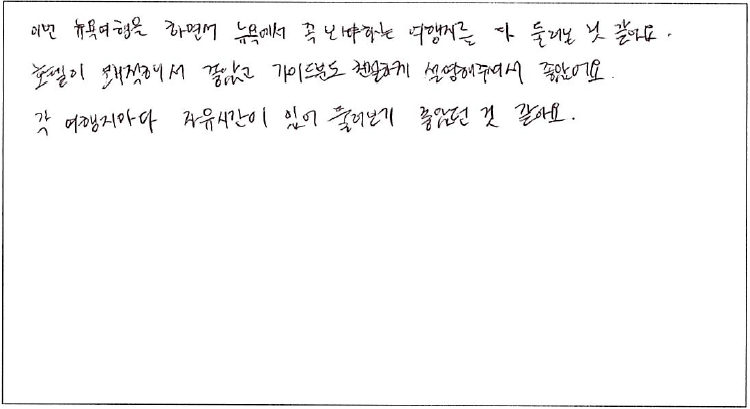 이번 뉴욕여행을 하면서 뉴욕에서 꼭 봐야하는 여행지를 다 둘러본 것 같아요.
호텔이 쾌적해서 좋았고 가이드분도 친절하게 설명해주셔서 좋았어요.
각 여행지마다 자유시간이 있어 둘러보기 좋았던 것 같아요.